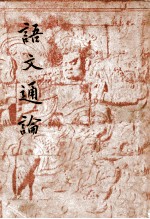 語文通論